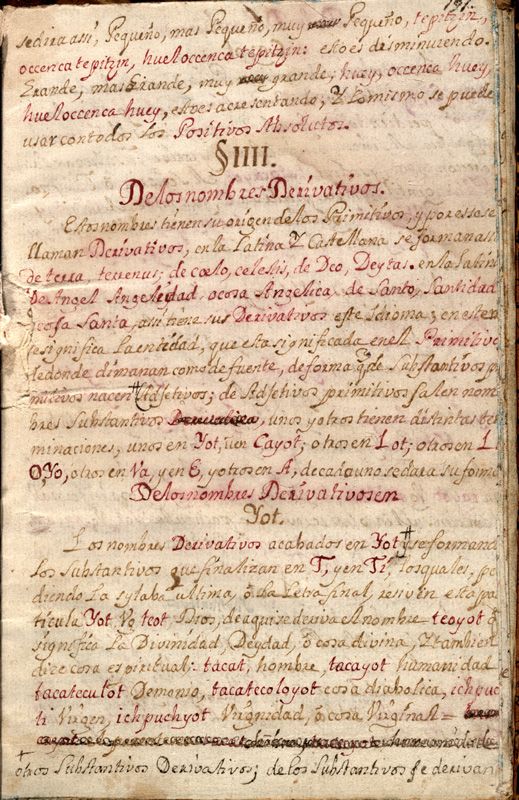 191.
se dira asi, Pequeño, mas Pequeño, muy Pequeño, tepitzin,
occenca tepitzin, huel occenca tepitzin: esto es disminuiendo.
Grande, mas Grande, muy grande, huey, occenca huey,
huel occenca huey, esto es acresentando, Y lo mismo se puede
usar con todos los Positivos Absolutos.
§IIII.
De los nombres Derivativos.
Estos nombres tienen su origen de los Primitivos, y por esso se
llaman Derivativos, en la Latina Y Castellana se forman asi
de terra, terrenus; de cœlo, celestis, de Deo, Deytas. en la Latin
De Angel Angelidad, o cosa Angelica, de Santo, Santidad
y cosa Santa, asi tiene sus Derivativos este Idioma; en este
se significa la entidad, que esta significada en el Primitivo
de donde dimanan como de fuente, de forma q̃ de Substantivos pri
mitivos nacen Adjetivos; de Adjetivos primitivos salen nom
bres Substantivos, unos y otros tienen distintas ter
minaciones; unos en Yot, u en Cayot; otros en Lot; otros en L
OYO, otros en Va, y en E, y otros en A, de cada uno se dara su forma
De los nombres Derivativos en
Yot.
Los nombres Derivativos acabados en Yot, se forman d
los Substantivos que finalizan en T, y en Ti, los quales, per
diendo la sylaba ultima, o la Letra final, resiven esta par
ticula Yot Vg teot Dios, de aqui se deriva el nombre teoyot q
significa la Divinidad, Deydad, o cosa divina, Y tambien
dice cosa espiritual: tacat, hombre, tacayot humanidad
tacateculot Demonio, tacatecoloyot cosa diabolica, ichpuch
ti Virgen, ichpuchyot Virginidad, o cosa Virginal
otros Substantivos Derivativos; de los Substantivos se derivan